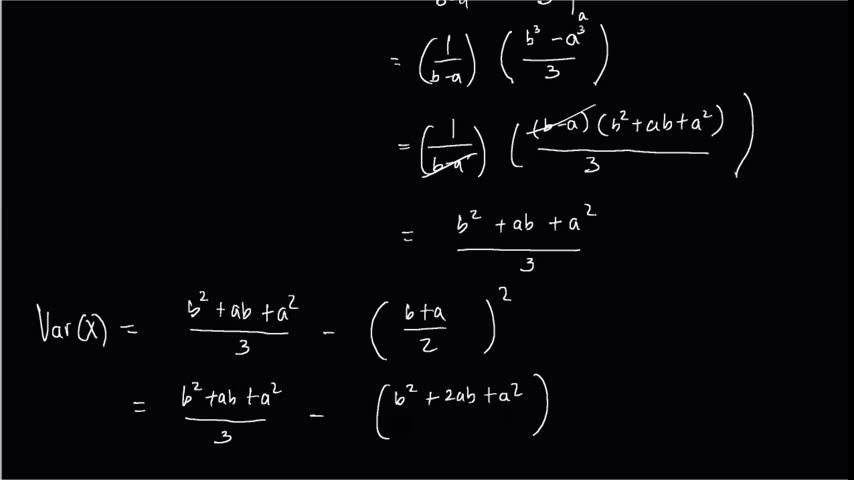 b-a 3 |a
= (1/(b-a)) ((b³-a³)/3)
= (1/(b-a)) ((b-a)(b²+ab+a²)/3)
= (b²+ab+a²)/3
Var(X) = (b²+ab+a²)/3 - ((b+a)/2)²
= (b²+ab+a²)/3 - (b²+2ab+a²)